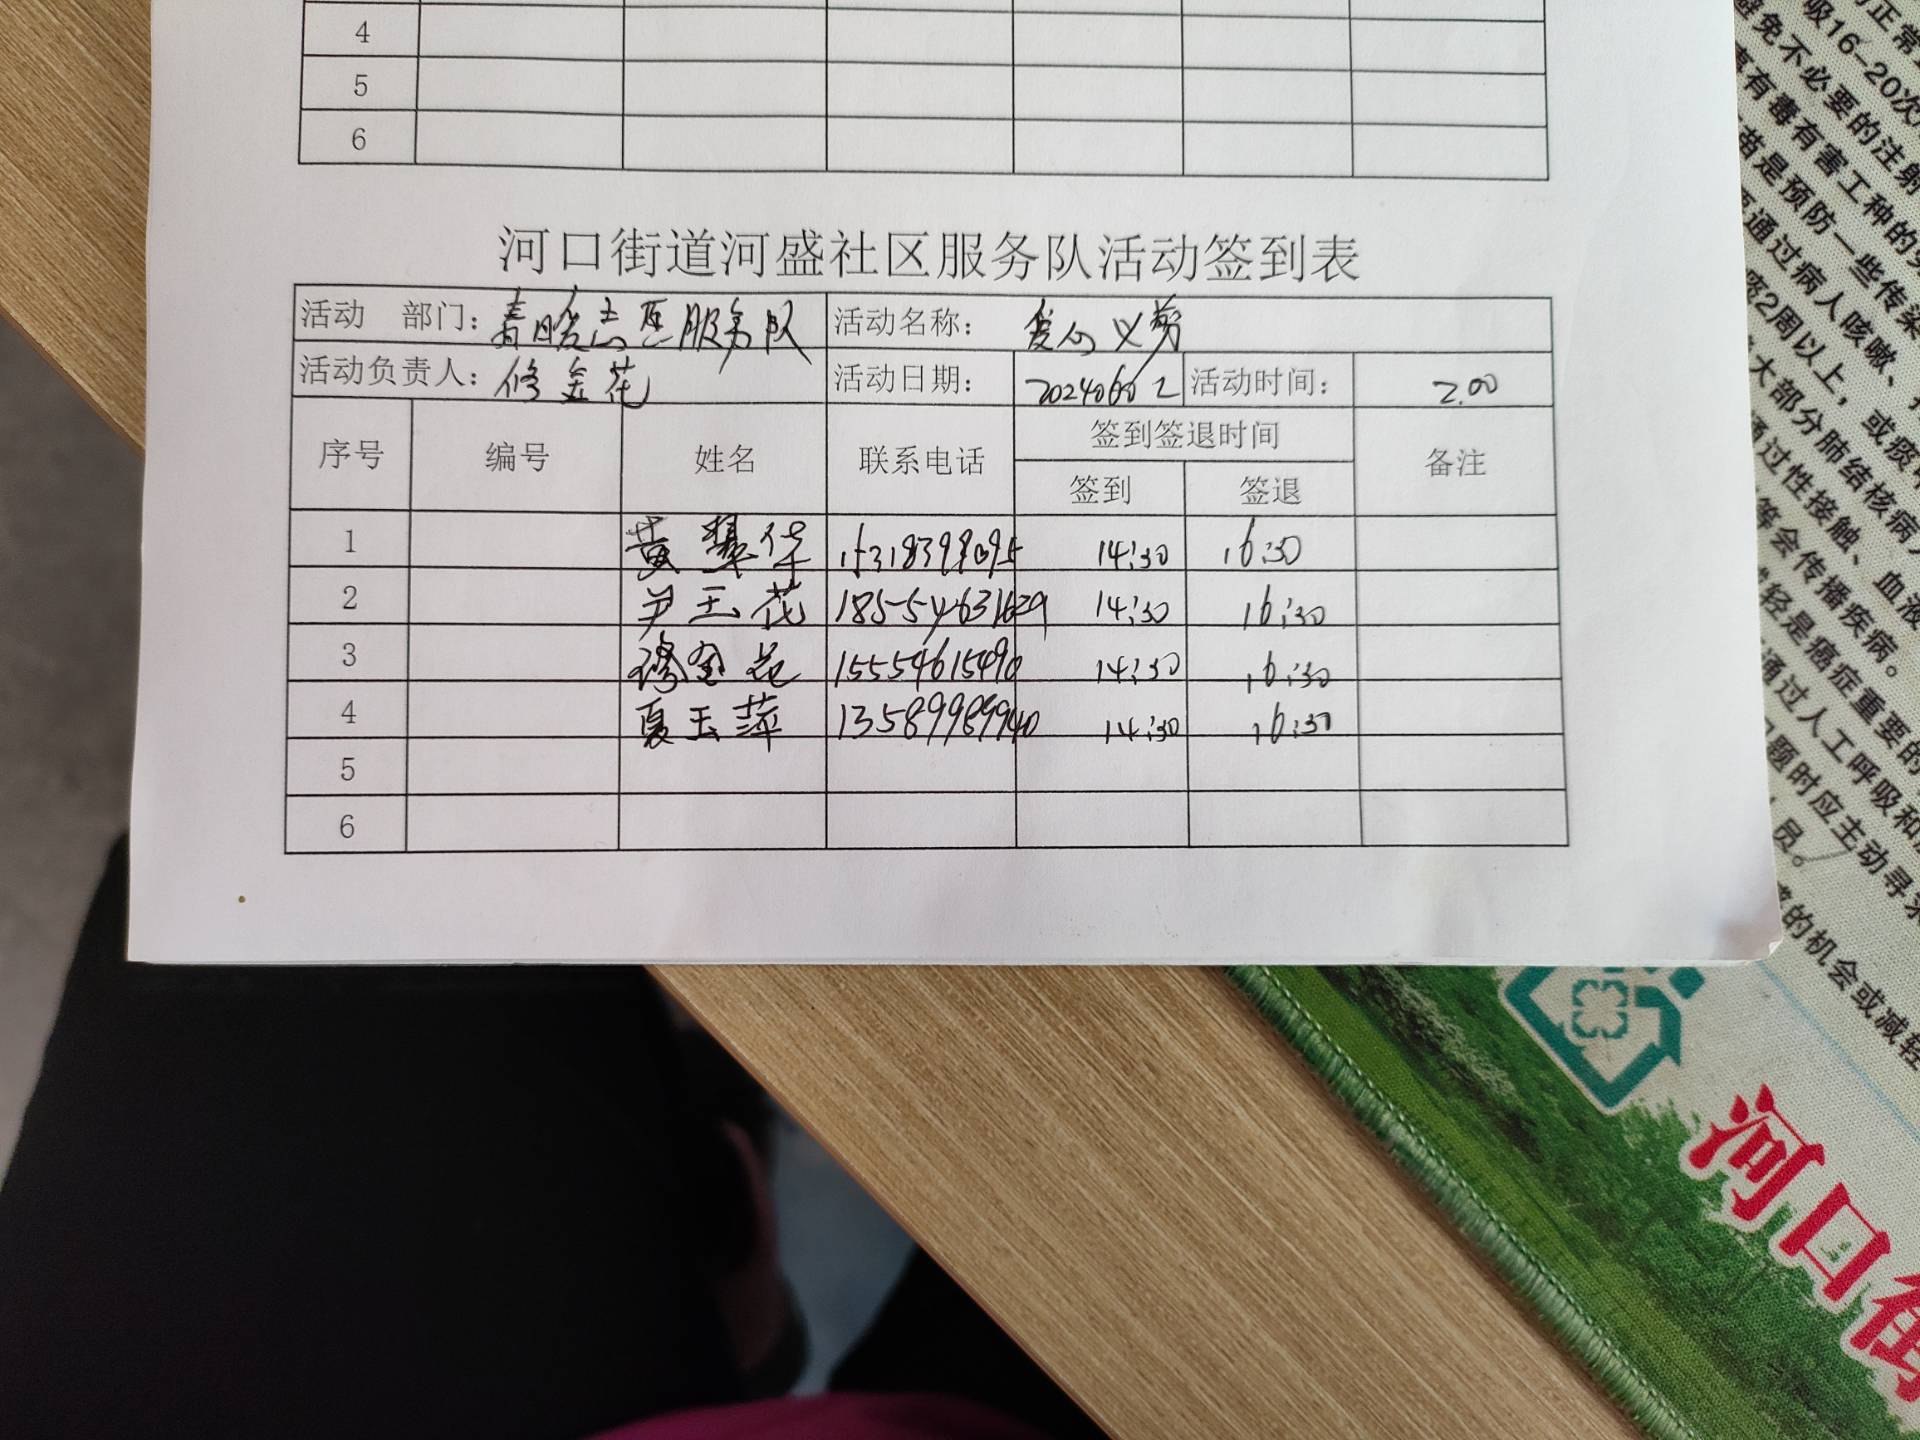 4
5
6
河口街道河盛社区服务队活动签到表
活动 部门：春暖志愿服务队 活动名称：爱心义剪
活动负责人：修金花 活动日期： 活动时间：2.00
序号 编号 姓名 联系电话 签到签退时间 备注
签到 签退
1 黄翠华 15318399095 14:30 16:30
2 尹玉花 18554631629 14:30 16:30
3 修金花 15554615490 14:30 16:30
4 夏玉萍 13589989940 14:30 16:30
5
6
吸16-20次
避免不必要的注射
有毒有害工种的
苗是预防一些传染
通过病人咳嗽、
2周以上，或痰
大部分肺结核病人
通过性接触、血液
等会传播疾病。
轻是癌症重要的
通过人工呼吸和
问题时应主动寻求
员。
的机会或减轻
河口街